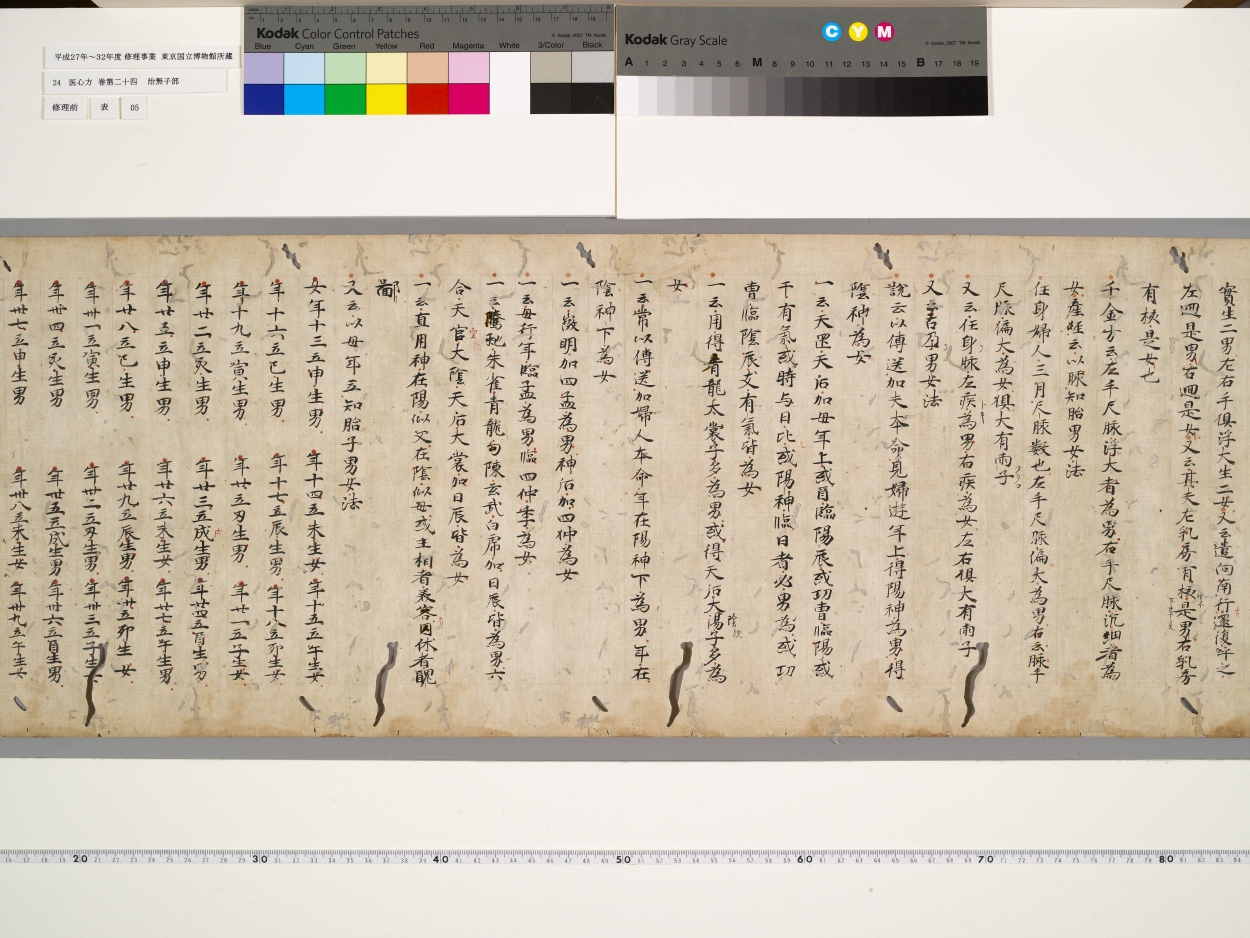 平成27年～32年度 修理事業 東京国立博物館所蔵
24 医心方 巻第二十四 治無子部
修理前 表 05
Kodak Color Control Patches
© Kodak, 2007 TM: Kodak
Blue Cyan Green Yellow Red Magenta White 3/Color Black
Kodak Gray Scale
C Y M
© Kodak, 2007 TM: Kodak
A 1 2 3 4 5 6 M 8 9 10 11 12 13 14 15 B 17 18 19
實生二男左右手俱浮大生二女又云遣向南行還復呼之
左迴是男右迴是女又云其夫左乳房有核是男右乳房
有核是女也
千金方云左手尺脉浮大者為男右手尺脉沉細者為
女産經云以脉知胎男女法
任身婦人三月尺脉數也左手尺脉偏大為男右云脉手
尺脉偏大為女俱大有兩子
又云任身脉左疾為男右疾為女左右俱大有兩子
又云占孕男女法
說云以傳送加夫本命見婦遊年上得陽神為男得
陰神為女
一云天罡天后加母年上或臨陽辰或功曹臨陽或
干有氣或時与日比或陽神臨日者必男為或功
曹臨陰辰支有氣皆為女
一云用得青龍太裳子多為男或得天后大陽子多為
女
一云常以傳送加婦人本命年在陽神下為男年在
陰神下為女
一云徵明加四孟為男神后加四仲為女
一云每行年臨孟為男臨四仲季為女
一云騰虵朱雀青龍句陳玄武白席加日辰皆為男六
合天官大陰天后大裳加日辰皆為女
一云直用神在陽似父在陰似母或王相者表容囚休者醜
鄙
又云以母年立知胎子男女法
女年十三立申生男 年十四立未生女 年十五立午生女
年十六立巳生男 年十七立辰生男 年十八立卯生女
年十九立寅生男 年廿立丑生男 年廿一立子生女
年廿二立亥生男 年廿三立戌生男 年廿四立酉生男
年廿五立申生男 年廿六立未生女 年廿七立午生女
年廿八立巳生男 年廿九立辰生男 年卅立卯生女
年卅一立寅生男 年卅二立丑生男 年卅三立子生女
年卅四立亥生男 年卅五立戌生男 年卅六立酉生男
年卅七立申生男 年卅八立未生女 年卅九立午生女
20 30 40 50 60 70 80